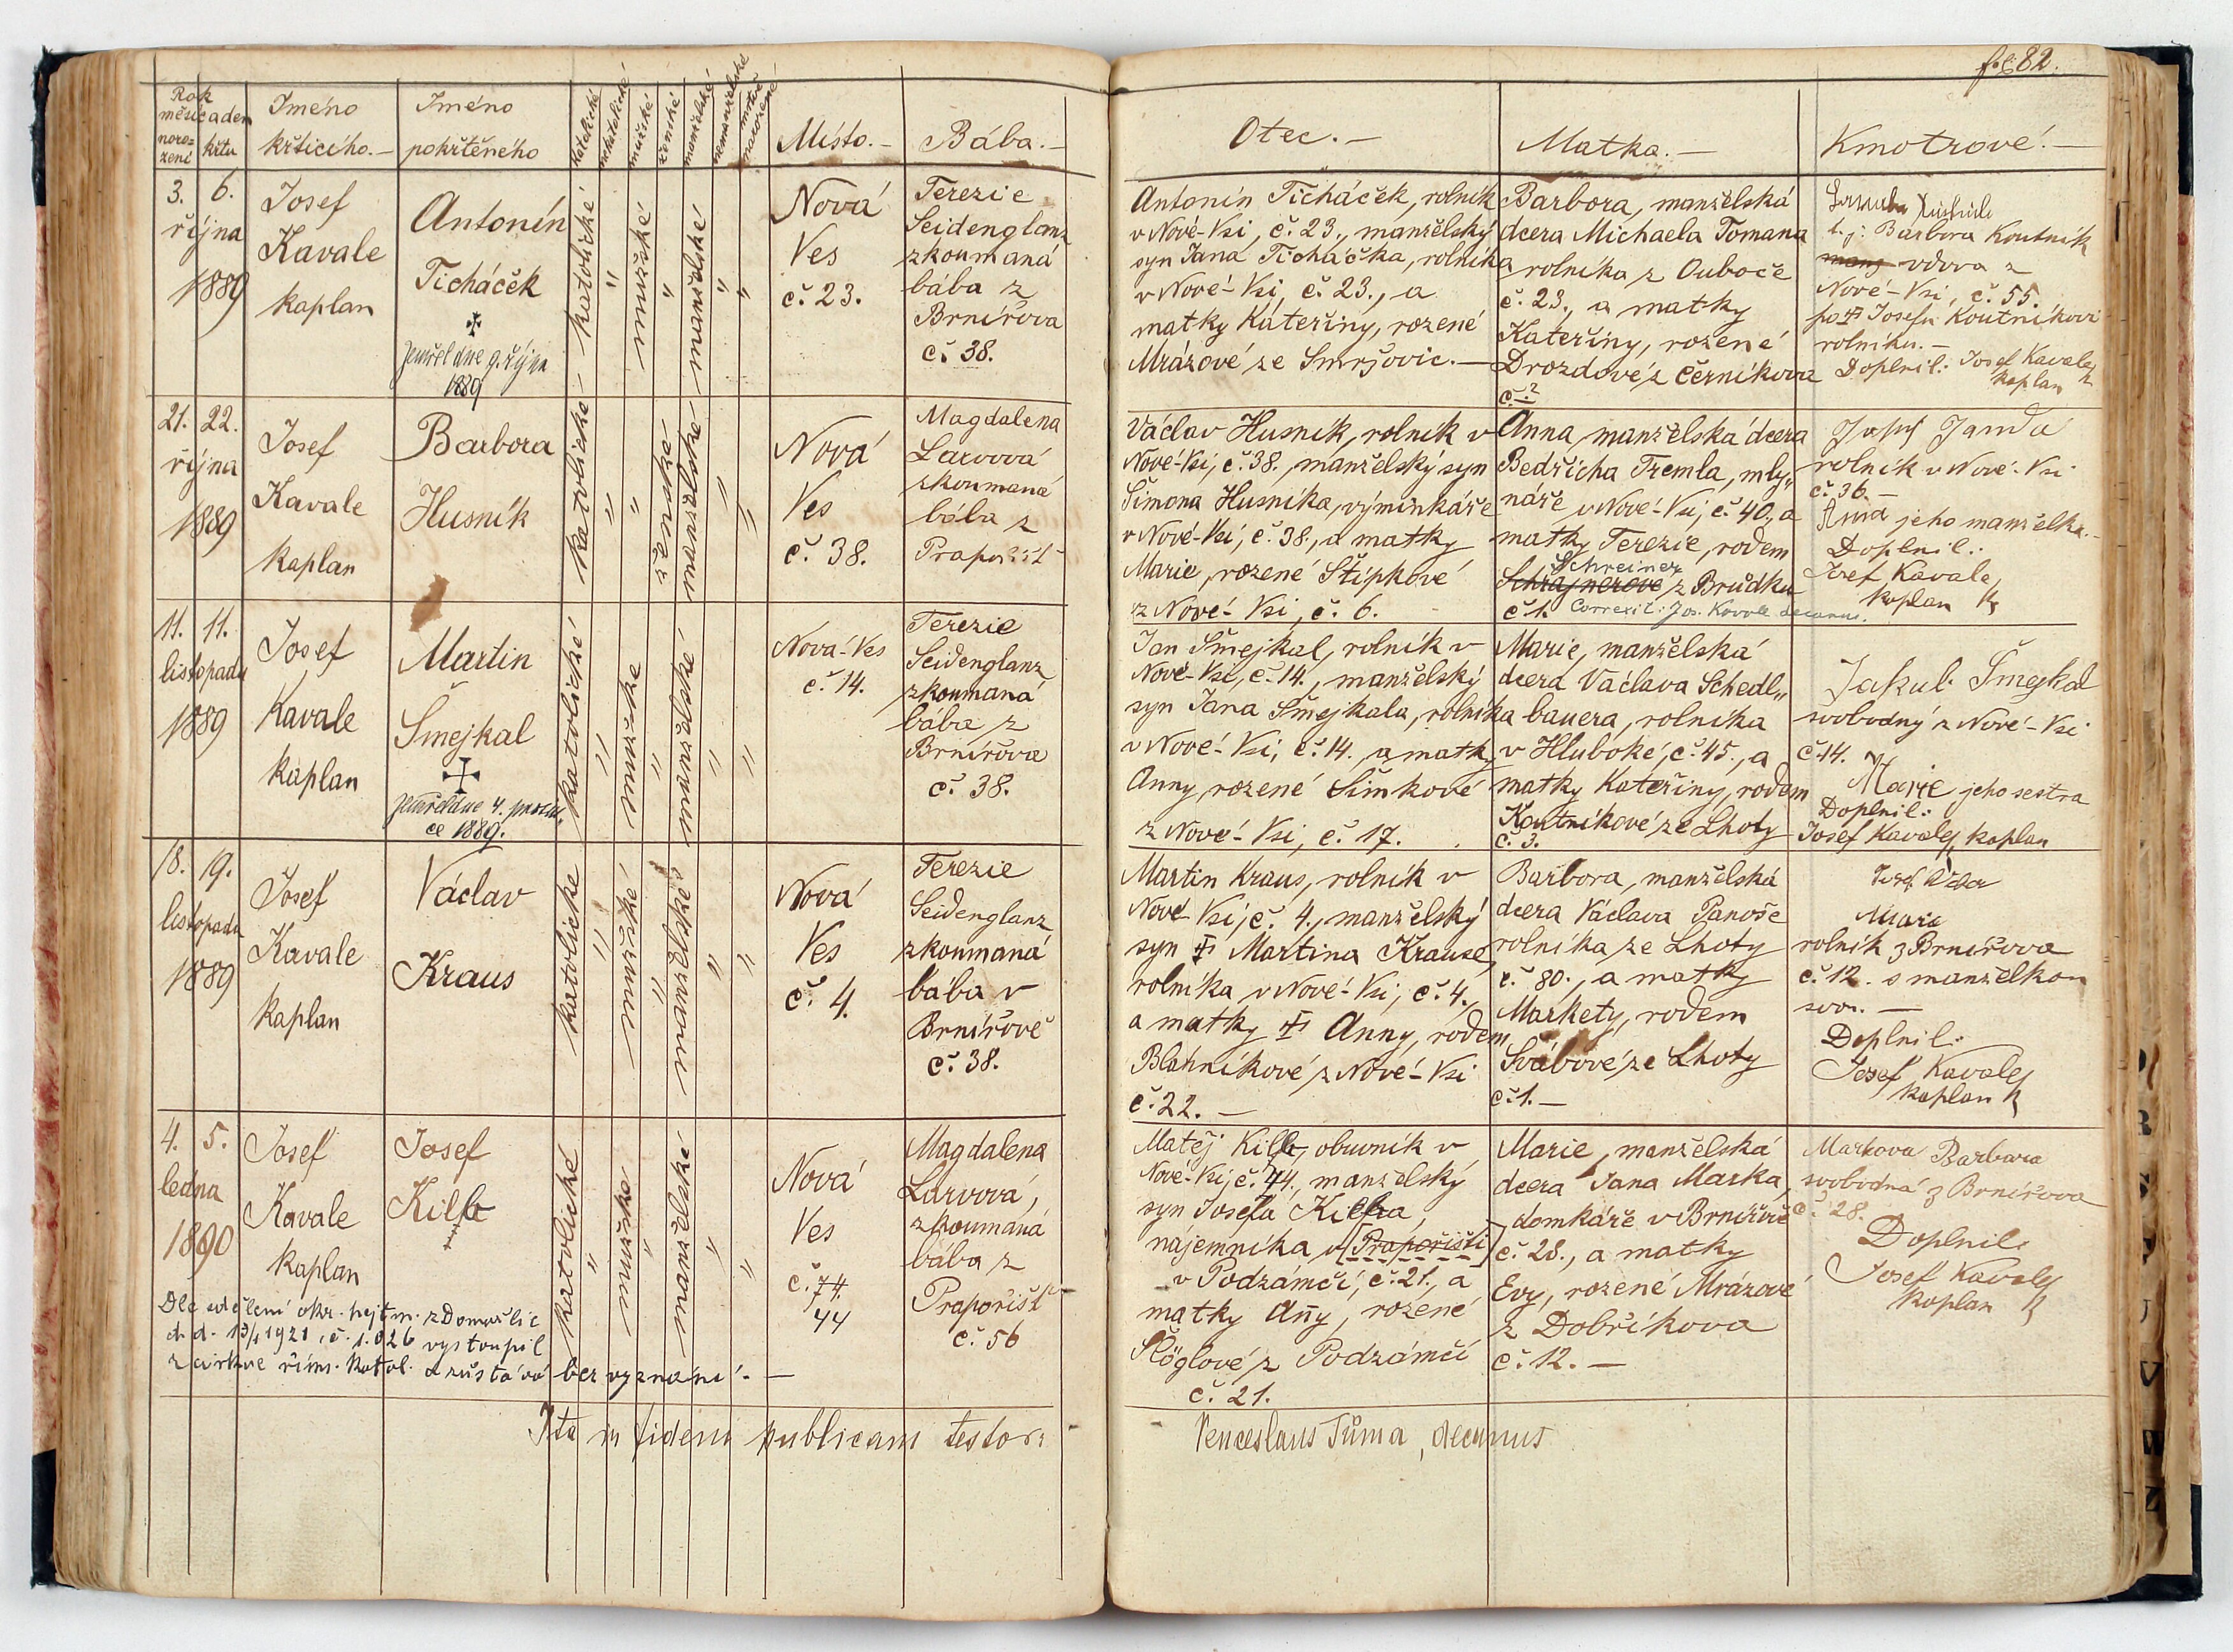 fol. 82.
Rok
měsíc a den
naro-
zení
křtu
Jméno
křtícího.—
Jméno
pokřtěného
katolické
nekatolické
mužské
ženské
manželské
nemanželské
mrtvě
narozené
Místo.—
Bába.—
Otec.—
Matka.—
Kmotrové.—
3. 6.
října
1889
Josef
Kavale
kaplan
Antonín
Ticháček
zemřel dne 9. října
1889
katolické
"
mužské
"
manželské
"
"
Nová
Ves
č. 23.
Terezie
Seidenglanz
zkoumaná
bába z
Brnířova
č. 38.
Antonín Ticháček, rolník
v Nové-Vsi, č. 23., manželský
syn Jana Ticháčka, rolníka
v Nové-Vsi, č. 23., a
matky Kateřiny, rozené
Mrázové ze Smržovic.—
Barbora, manželská
dcera Michaela Tomana
rolníka z Ouboče
č. 23., a matky
Kateřiny, rozené
Drozdové z Černíkova
č. ?
t. j: Barbora Koutník
vdova z
Nové-Vsi, č. 55.
po Josefu Koutníkovi
rolníku.—
Doplnil: Josef Kavale,
kaplan
21. 22.
října
1889
Josef
Kavale
kaplan
Barbora
Husník
katolické
"
"
ženské
manželské
"
"
Nová
Ves
č. 38.
Magdalena
Larvová
zkoumaná
bába z
Prapořišť
Václav Husník, rolník v
Nové-Vsi, č. 38., manželský syn
Šimona Husníka, výminkáře
v Nové-Vsi, č. 38., a matky
Marie, rozené Štípkové
z Nové-Vsi, č. 6.
Anna, manželská dcera
Bedřicha Tremla, mly„
náře v Nové-Vsi, č. 40., a
matky Terezie, rodem
Schreiner
Schrajnerové z Brůdku
č. 1. Correxit: Jos. Kavale decanus.
Josef Janda
rolník v Nové-Vsi
č. 36.—
Anna jeho manželka.—
Doplnil:
Josef Kavale,
kaplan
11. 11.
listopadu
1889
Josef
Kavale
kaplan
Martin
Šmejkal
zemřel dne 4. prosin-
ce 1889.
katolické
"
mužské
"
manželské
"
"
Nová-Ves
č. 14.
Terezie
Seidenglanz
zkoumaná
bába z
Brnířova
č. 38.
Jan Šmejkal, rolník v
Nové-Vsi, č. 14., manželský
syn Jana Šmejkala, rolníka
v Nové-Vsi, č. 14. a matky
Anny, rozené Šimkové
z Nové-Vsi, č. 17.
Marie, manželská
dcera Václava Schedl„
bauera, rolníka
v Hluboké, č. 45., a
matky Kateřiny, rodem
Koutníkové ze Lhoty
č. 3.
Jakub Šmejkal
svobodný z Nové-Vsi
č. 14.
Marie jeho sestra
Doplnil:
Josef Kavale, kaplan
18. 19.
listopadu
1889
Josef
Kavale
kaplan
Václav
Kraus
katolické
"
mužské
"
manželské
"
"
Nová
Ves
č. 4.
Terezie
Seidenglanz
zkoumaná
bába v
Brnířově
č. 38.
Martin Kraus, rolník v
Nové Vsi, č. 4., manželský
syn Martina Krause,
rolníka v Nové-Vsi, č. 4.,
a matky Anny, rodem
Blahníkové z Nové-Vsi
č. 22.—
Barbora, manželská
dcera Václava Panoše
rolníka ze Lhoty
č. 80., a matky
Markety, rodem
Švábové ze Lhoty
č. 1.—
Josef
Marie
rolník z Brnířova
č. 12. s manželkou
svou.—
Doplnil:
Josef Kavale,
kaplan
4. 5.
ledna
1890
Josef
Kavale
kaplan
Josef
Kilb
katolické
"
mužské
"
manželské
"
"
Nová
Ves
č. 74.
44
Magdalena
Larvová,
zkoumaná
bába z
Prapořišť
č. 56
Matěj Kilb, obuvník v
Nové-Vsi, č. 44., manželský
syn Josefa Kilba,
nájemníka v [Prapořišti]
v Podzámčí, č. 21., a
matky Anny, rozené
Flöglové z Podzámčí
č. 21.
Marie, manželská
dcera Jana Marka,
domkáře v Brnířově
č. 28., a matky
Evy, rozené Mrázové
z Dobříkova
č. 12.—
Markova Barbora
svobodná z Brnířova
č. 28.
Doplnil:
Josef Kavale,
kaplan
Dle sdělení okr. hejtm. z Domažlic
d. d. 13/1 1921, č. j. 826 vystoupil
z církve řím. katol. a zůstává bez vyznání.—
Ita in fidem publicam testor:
Venceslaus Tůma, decanus